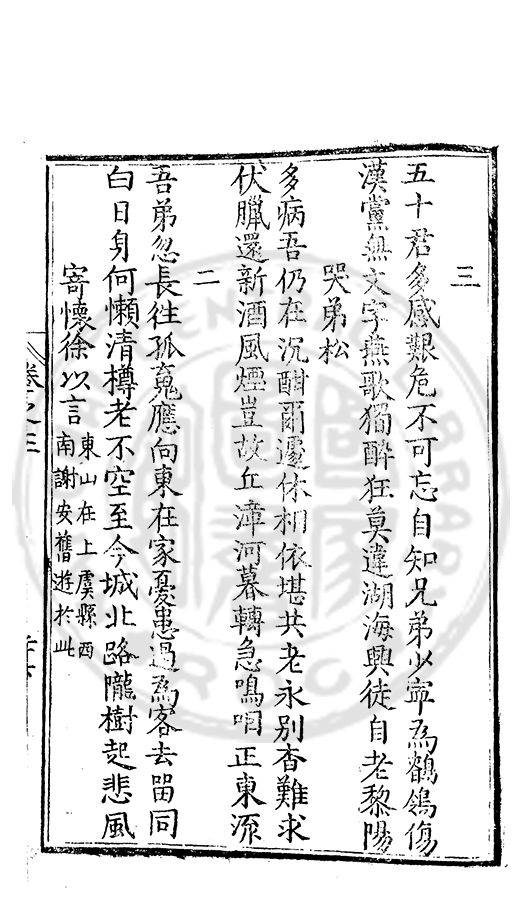 三
五十君多感艱危不可忘自知兄弟少寧為鶺鴒傷
漢黨無文字燕歌獨醉狂莫違湖海興徒自老黎陽
哭弟松
多病吾仍在沉酣爾遽休相依堪共老永别杳難求
伏臘還新酒風煙豈故丘漳河暮轉急鳴咽正東流
二
吾弟忽長往孤䰟應向東在家憂患過為客去留同
白日身何懶清樽老不空至今城北路隴樹起悲風
寄懷徐以言
東山在上虞縣西
南謝安舊遊於此
卷之三